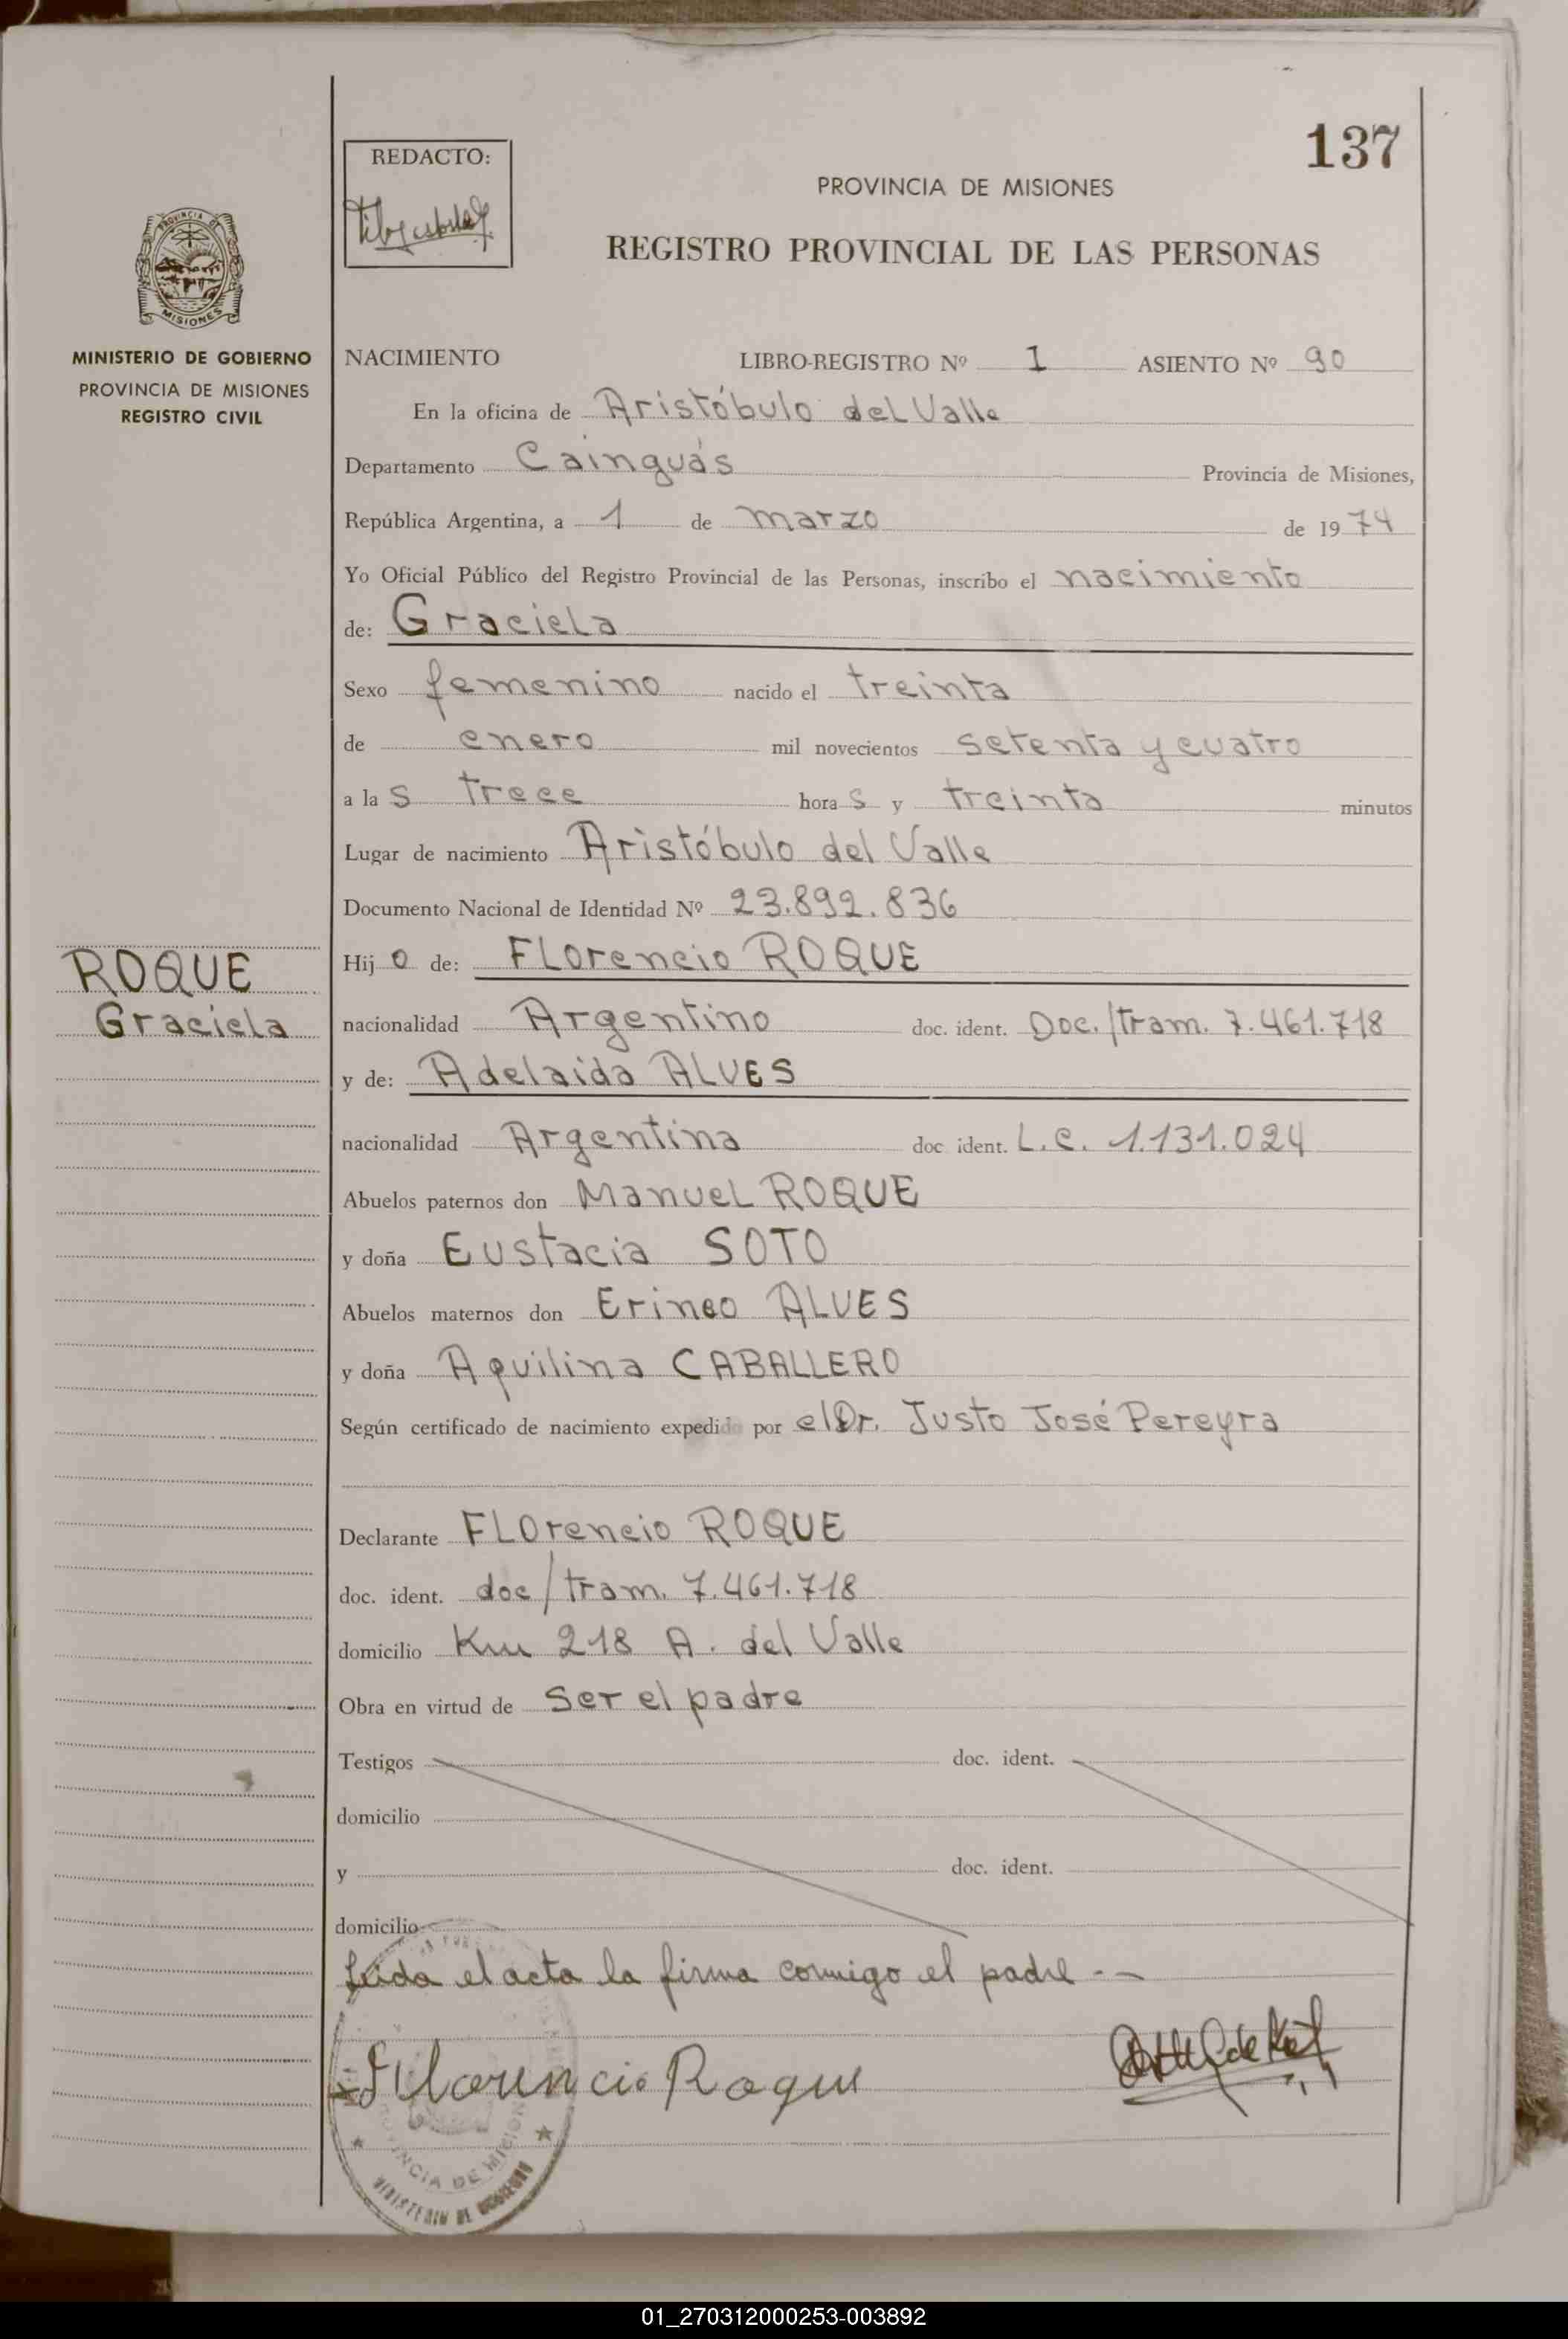 137
REDACTO:
PROVINCIA DE MISIONES
REGISTRO PROVINCIAL DE LAS PERSONAS
PROVINCIA DE
MISIONES
MINISTERIO DE GOBIERNO
PROVINCIA DE MISIONES
REGISTRO CIVIL
NACIMIENTO LIBRO-REGISTRO Nº 1 ASIENTO Nº 90
En la oficina de Aristóbulo del Valle
Departamento Cainguás Provincia de Misiones,
República Argentina, a 1 de marzo de 1974
Yo Oficial Público del Registro Provincial de las Personas, inscribo el nacimiento
de: Graciela
Sexo femenino nacido el treinta
de enero mil novecientos setenta y cuatro
a la s trece hora s y treinta minutos
Lugar de nacimiento Aristóbulo del Valle
Documento Nacional de Identidad Nº 23.892.836
ROQUE
Graciela
Hij o de: FLorencio ROQUE
nacionalidad Argentino doc. ident. Doc./tram. 7.461.718
y de: Adelaida ALVES
nacionalidad Argentina doc ident. L.C. 1.131.024
Abuelos paternos don Manuel ROQUE
y doña Eustacia SOTO
Abuelos maternos don Erineo ALVES
y doña Aquilina CABALLERO
Según certificado de nacimiento expedido por el Dr. Justo José Pereyra
Declarante FLorencio ROQUE
doc. ident. doc/tram. 7.461.718
domicilio Km 218 A. del Valle
Obra en virtud de ser el padre
Testigos doc. ident.
domicilio
y doc. ident.
domicilio
Leida el acta la firma conmigo el padre.-
Florencio Roque
PROVINCIA DE MISIONES
MINISTERIO DE GOBIERNO
01_270312000253-003892